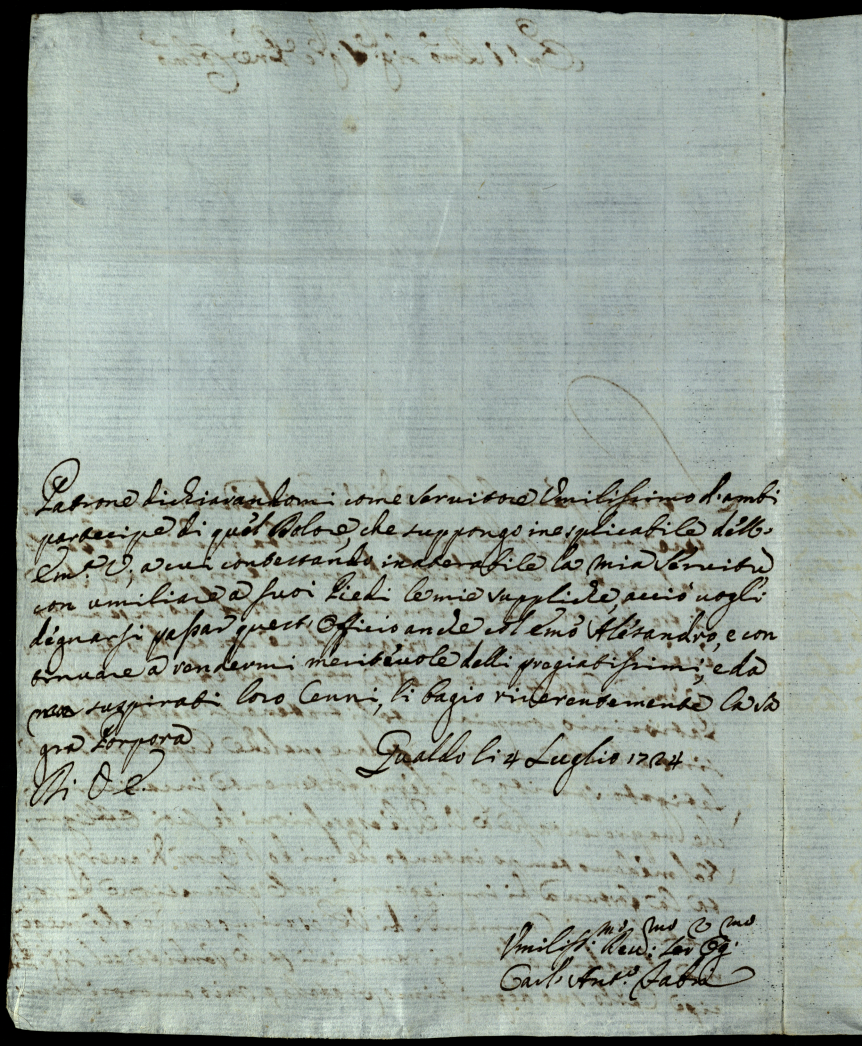 Patrone dichiarandomi come servitore Umilissimo d'ambi
partecipe di quel Dolore, che suppongo inesplicabile dell'
Em.ᵃ V, a cui contestando inalterabile la mia Servitù
con umiliare a suoi Piedi le mie suppliche, acciò vogli
degnarsi passar quest'Officio anche col Emo Alesandro, e con
tinuare a rendermi meritevole delli pregiatissimi, e da
me suspirati loro Cenni, li bagio riverentemente la sa
gra Porpora
Di V. E.
Gualdo li 4 Luglio 1724
Umiliss:ᵐᵒ Dev:ᵐᵒ Ser Og:ᵐᵒ
Carl' Ant.º Fabri